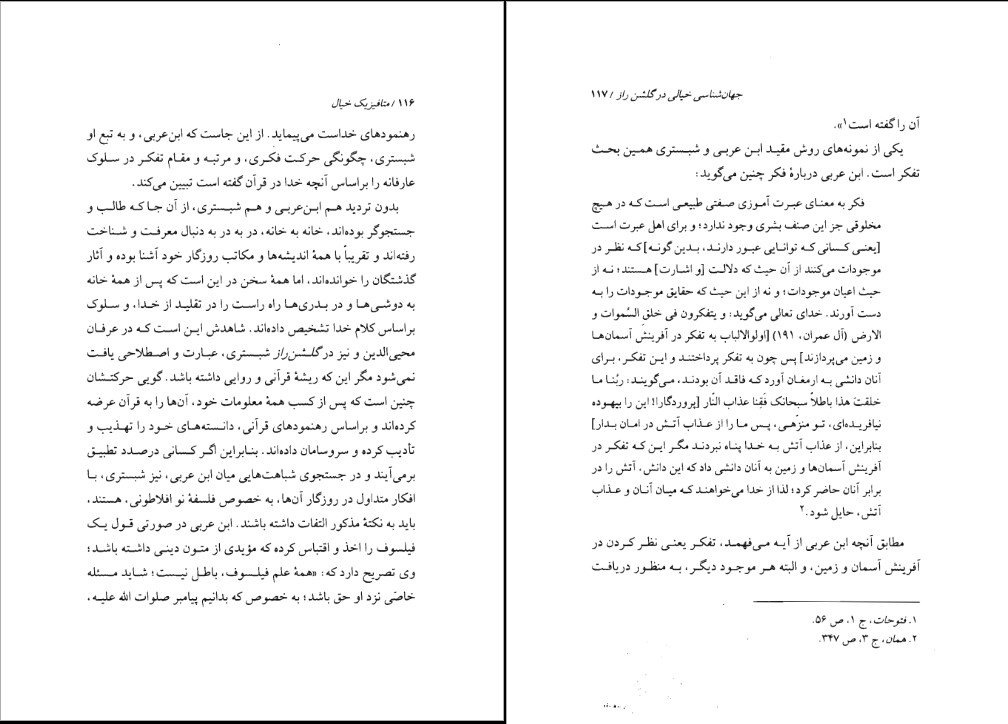 ۱۱۶ / متافیزیک خیال
رهنمودهای خداست می‌پیماید. از این جاست که ابن‌عربی، و به تبع او
شبستری، چگونگی حرکت فکری، و مرتبه و مقام تفکر در سلوک
عارفانه را براساس آنچه خدا در قرآن گفته است تبیین می‌کند.
بدون تردید هم ابن‌عربی و هم شبستری، از آن جا که طالب و
جستجوگر بوده‌اند، خانه به خانه، در به در به دنبال معرفت و شناخت
رفته‌اند و تقریباً با همهٔ اندیشه‌ها و مکاتب روزگار خود آشنا بوده و آثار
گذشتگان را خوانده‌اند، اما همهٔ سخن در این است که پس از همهٔ خانه
به دوشی‌ها و در بدری‌ها راه راست را در تقلید از خدا، و سلوک
براساس کلام خدا تشخیص داده‌اند. شاهدش این است که در عرفان
محیی‌الدین و نیز در گلشن‌راز شبستری، عبارت و اصطلاحی یافت
نمی‌شود مگر این که ریشهٔ قرآنی و روایی داشته باشد. گویی حرکتشان
چنین است که پس از کسب همهٔ معلومات خود، آن‌ها را به قرآن عرضه
کرده‌اند و براساس رهنمودهای قرآنی، دانسته‌های خود را تهذیب و
تأدیب کرده و سروسامان داده‌اند. بنابراین اگر کسانی درصدد تطبیق
برمی‌آیند و در جستجوی شباهت‌هایی میان ابن عربی، نیز شبستری، با
افکار متداول در روزگار آن‌ها، به خصوص فلسفهٔ نو افلاطونی، هستند،
باید به نکتهٔ مذکور التفات داشته باشند. ابن عربی در صورتی قول یک
فیلسوف را اخذ و اقتباس کرده که مؤیدی از متون دینی داشته باشد؛
وی تصریح دارد که: «همهٔ علم فیلسوف، باطل نیست؛ شاید مسئله
خاصّی نزد او حق باشد؛ به خصوص که بدانیم پیامبر صلوات الله علیه،
جهان‌شناسی خیالی در گلشن راز / ۱۱۷
آن را گفته است۱».
یکی از نمونه‌های روش مقید ابن عربی و شبستری همین بحث
تفکر است. ابن عربی دربارهٔ فکر چنین می‌گوید:
فکر به معنای عبرت آموزی صفتی طبیعی است که در هیچ
مخلوقی جز این صنف بشری وجود ندارد؛ و برای اهل عبرت است
[یعنی کسانی که توانایی عبور دارند، بدین گونه] که نظر در
موجودات می‌کنند از آن حیث که دلالت [و اشارت] هستند؛ نه از
حیث اعیان موجودات؛ و نه از این حیث که حقایق موجودات را به
دست آورند. خدای تعالی می‌گوید: و یتفکرون فی خلق السّموات و
الارض (آل عمران، ۱۹۱) [اولوالالباب به تفکر در آفرینش آسمان‌ها
و زمین می‌پردازند] پس چون به تفکر پرداختند و این تفکر، برای
آنان دانشی به ارمغان آورد که فاقد آن بودند، می‌گویند: ربّنا ما
خلقت هذا باطلاً سبحانک فَقِنا عذاب النّار [پروردگارا! این را بیهوده
نیافریده‌ای، تو منزّهی، پس ما را از عذاب آتش در امان بدار]
بنابراین، از عذاب آتش به خدا پناه نبردند مگر این که تفکر در
آفرینش آسمان‌ها و زمین به آنان دانشی داد که این دانش، آتش را در
برابر آنان حاضر کرد؛ لذا از خدا می‌خواهند که میان آنان و عذاب
آتش، حایل شود.۲
مطابق آنچه ابن عربی از آیه می‌فهمد، تفکر یعنی نظر کردن در
آفرینش آسمان و زمین، و البته هر موجود دیگر، به منظور دریافت
۱. فتوحات، ج ۱، ص ۵۶.
۲. همان، ج ۳، ص ۳۴۷.